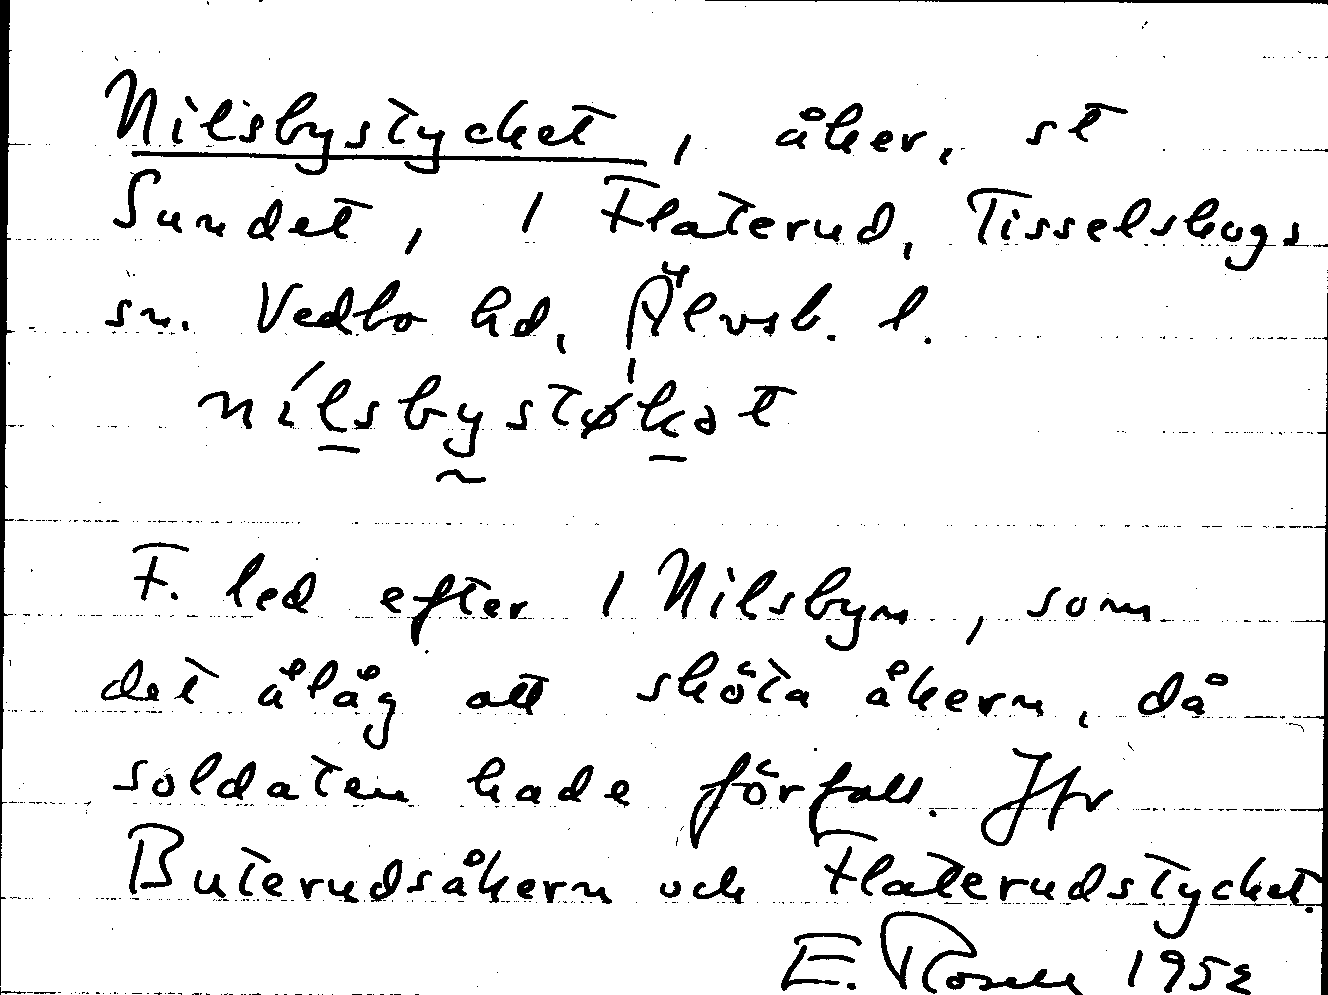 Nilsbystycket, åker, st
Sundet, 1 Flaterud, Tisselskogs
sn. Vedbo hd, Älvsb. l.
nílsbystø̀kət
F. led efter 1 Nilsbyn, som
det ålåg att sköta åkern, då
soldaten hade förfall. Jfr
Buterudsåkern och Flaterudstycket.
E. Rosell 1952